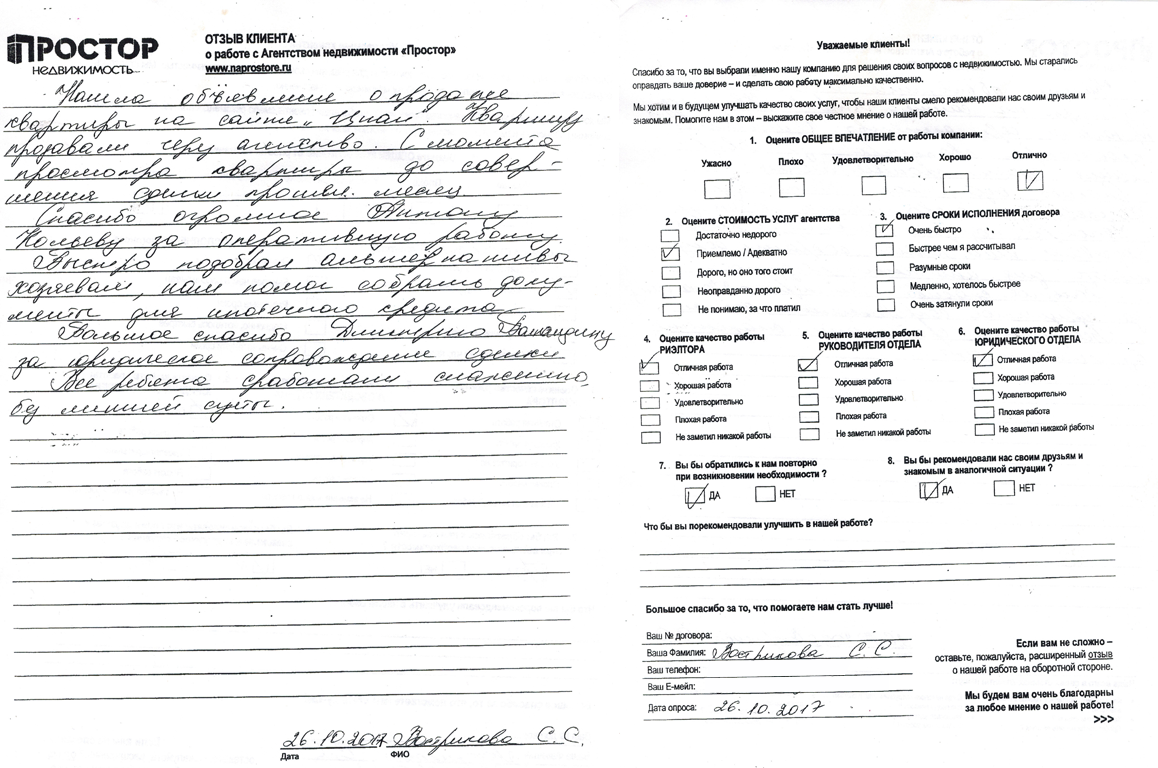 ПРОСТОР
НЕДВИЖИМОСТЬ
ОТЗЫВ КЛИЕНТА
о работе с Агентством недвижимости «Простор»
www.naprostore.ru
Нашла объявление о продаже
квартиры на сайте „Циан". Квартиру
продавали через агентство. С момента
просмотра квартиры до совер-
шения сделки прошел месяц.
Спасибо огромное Антону
за оперативную работу.
Быстро подобрал альтернативы
хозяевам, нам помог собрать доку-
менты для ипотечного кредита.
Большое спасибо Дмитрию
за юридическое сопровождение сделки
Все ребята сработали слаженно,
без лишней суеты.
26.10.2017 Вострикова С. С.
Дата ФИО
Уважаемые клиенты!
Спасибо за то, что вы выбрали именно нашу компанию для решения своих вопросов с недвижимостью. Мы старались
оправдать ваше доверие – и сделать свою работу максимально качественно.
Мы хотим и в будущем улучшать качество своих услуг, чтобы наши клиенты смело рекомендовали нас своим друзьям и
знакомым. Помогите нам в этом – выскажите свое честное мнение о нашей работе.
1. Оцените ОБЩЕЕ ВПЕЧАТЛЕНИЕ от работы компании:
Ужасно Плохо Удовлетворительно Хорошо Отлично
2. Оцените СТОИМОСТЬ УСЛУГ агентства
Достаточно недорого
Приемлемо / Адекватно
Дорого, но оно того стоит
Неоправданно дорого
Не понимаю, за что платил
3. Оцените СРОКИ ИСПОЛНЕНИЯ договора
Очень быстро
Быстрее чем я рассчитывал
Разумные сроки
Медленно, хотелось быстрее
Очень затянули сроки
4. Оцените качество работы
РИЭЛТОРА
Отличная работа
Хорошая работа
Удовлетворительно
Плохая работа
Не заметил никакой работы
5. Оцените качество работы
РУКОВОДИТЕЛЯ ОТДЕЛА
Отличная работа
Хорошая работа
Удовлетворительно
Плохая работа
Не заметил никакой работы
6. Оцените качество работы
ЮРИДИЧЕСКОГО ОТДЕЛА
Отличная работа
Хорошая работа
Удовлетворительно
Плохая работа
Не заметил никакой работы
7. Вы бы обратились к нам повторно
при возникновении необходимости ?
ДА НЕТ
8. Вы бы рекомендовали нас своим друзьям и
знакомым в аналогичной ситуации ?
ДА НЕТ
Что бы вы порекомендовали улучшить в нашей работе?
Большое спасибо за то, что помогаете нам стать лучше!
Ваш № договора:
Ваша Фамилия: Вострикова С. С.
Ваш телефон:
Ваш Е-мейл:
Дата опроса: 26.10.2017
Если вам не сложно –
оставьте, пожалуйста, расширенный отзыв
о нашей работе на оборотной стороне.
Мы будем вам очень благодарны
за любое мнение о нашей работе!
>>>